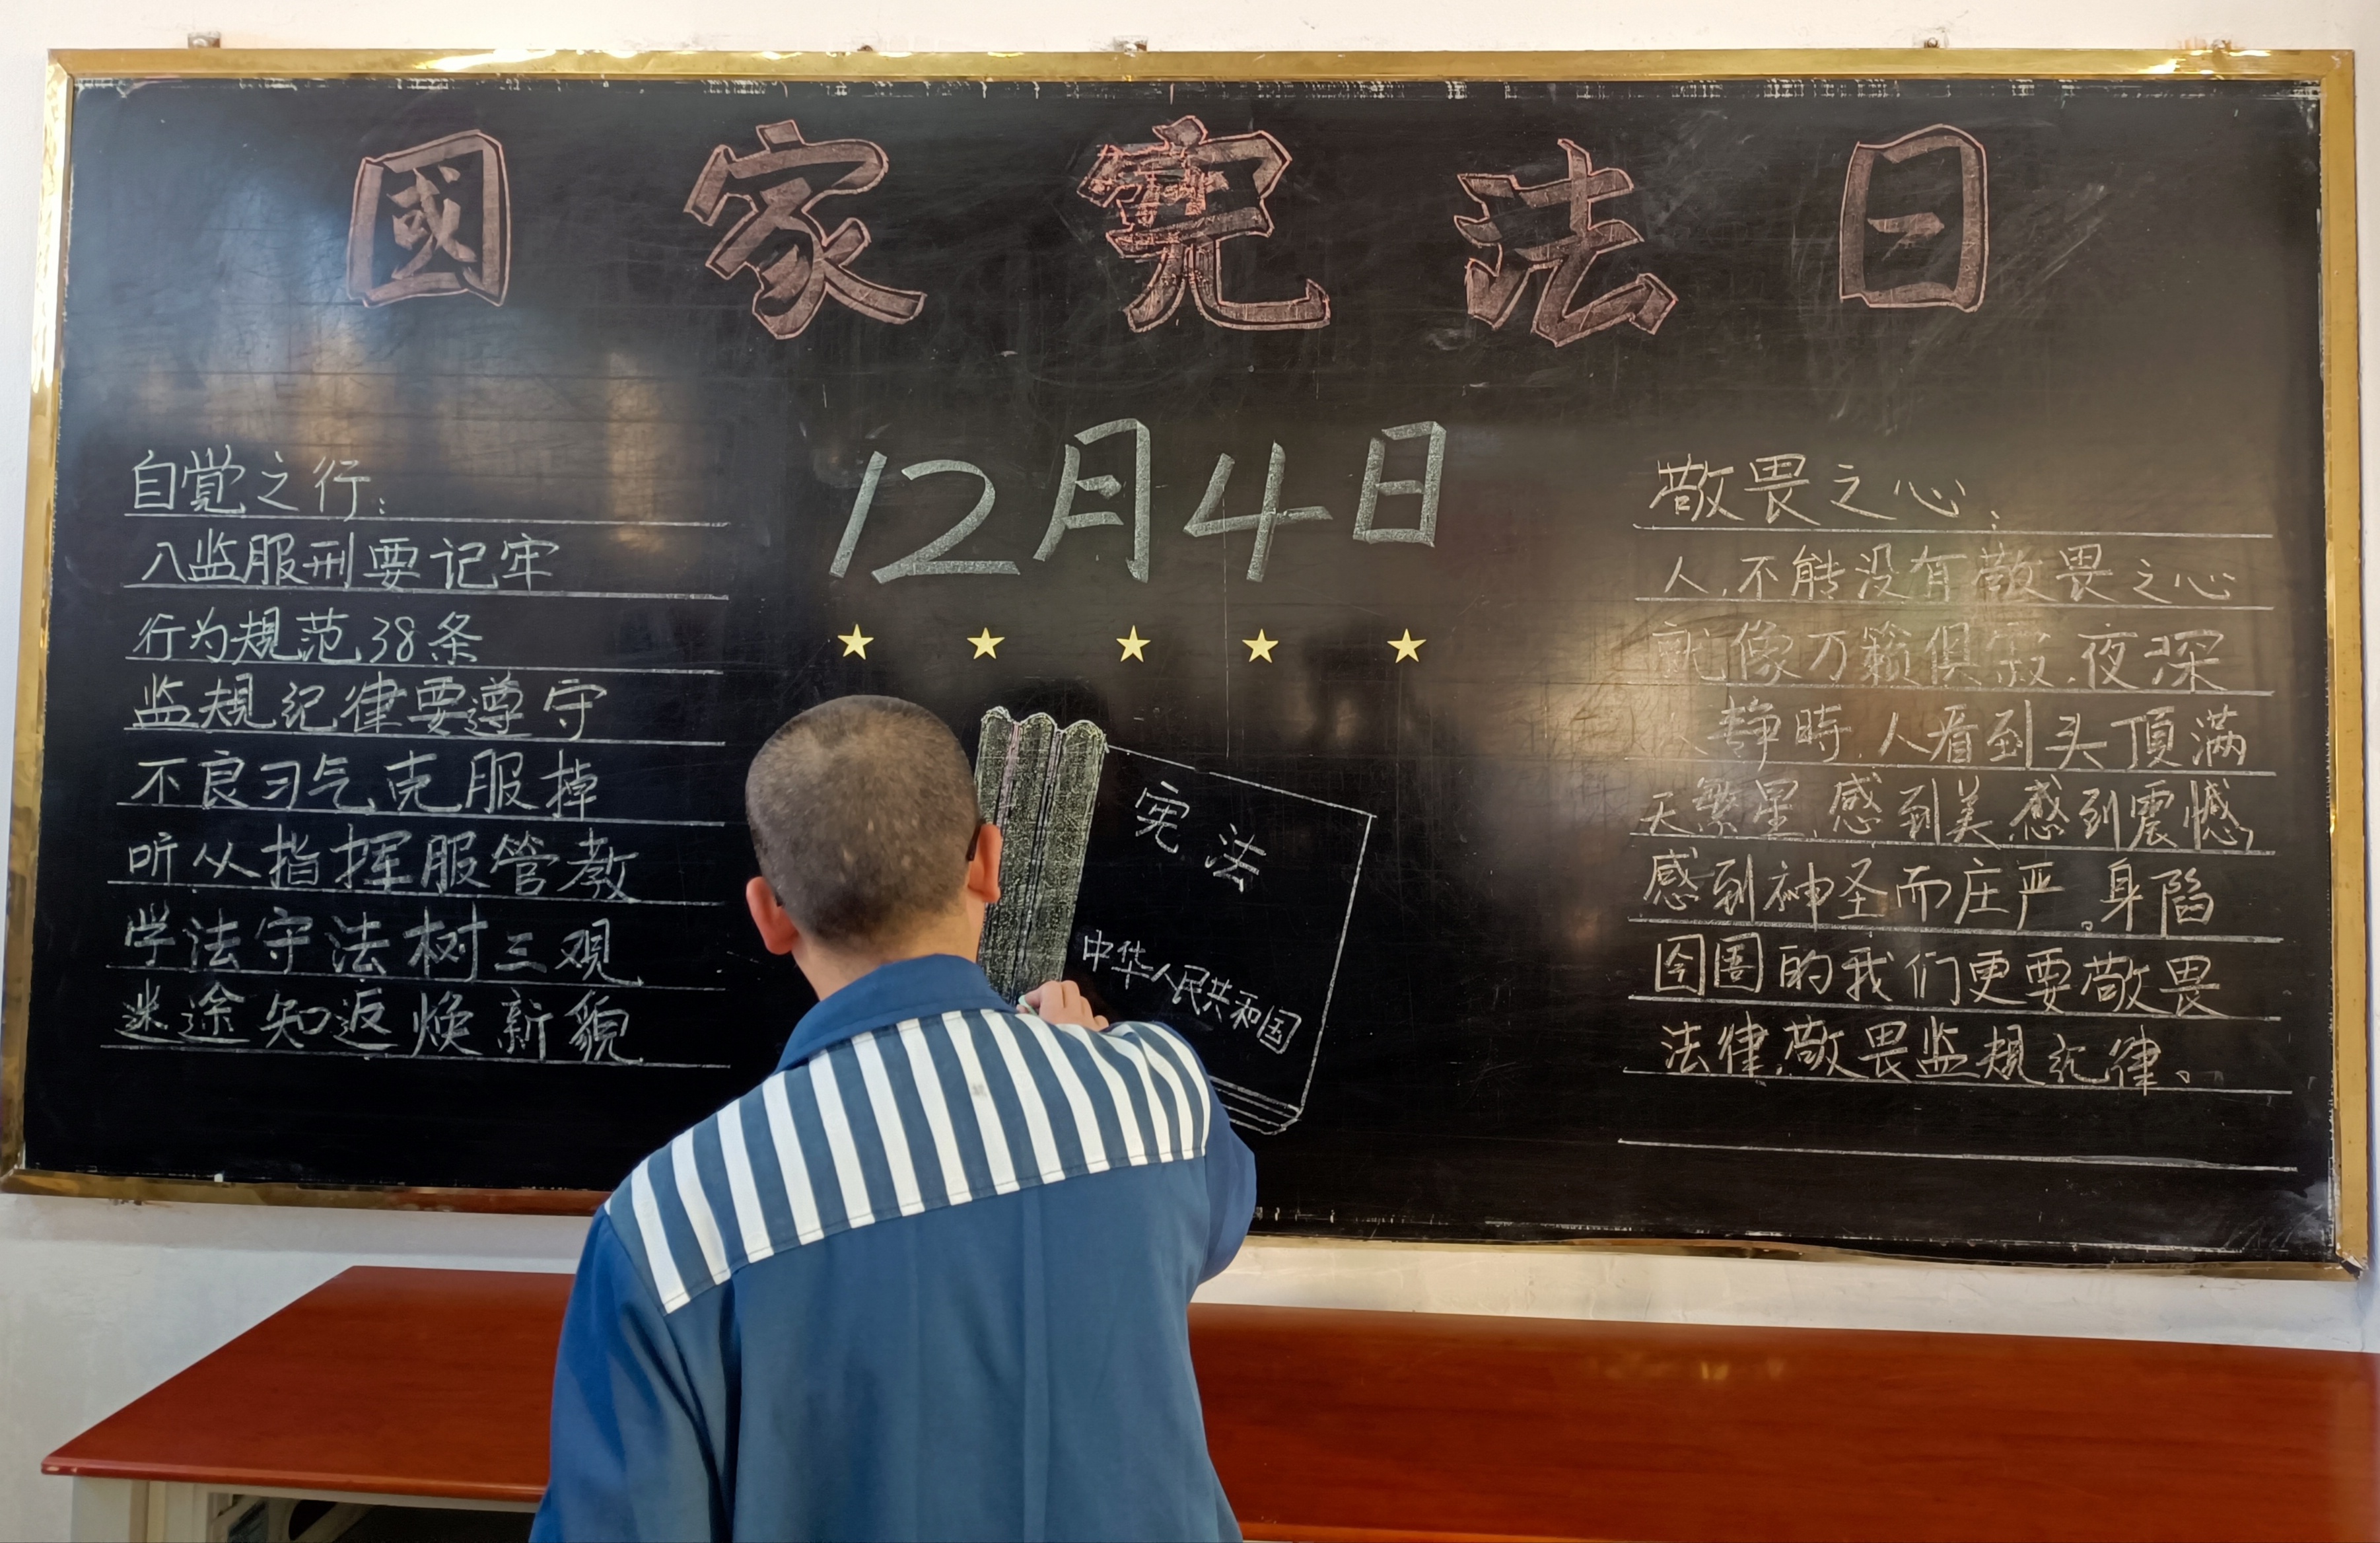 國家宪法日
12月4日
自覚之行:
入监服刑要记牢
行为规范38条
监規纪律要遵守
不良习气克服掉
听从指挥服管教
学法守法树三观
迷途知返焕新貌
宪法
中华人民共和国
敬畏之心:
人,不能没有敬畏之心
就像万籁俱寂,夜深
人静時,人看到头頂满
天繁星,感到美,感到震憾,
感到神圣而庄严。身陷
囹圄的我们更要敬畏
法律,敬畏监规纪律。